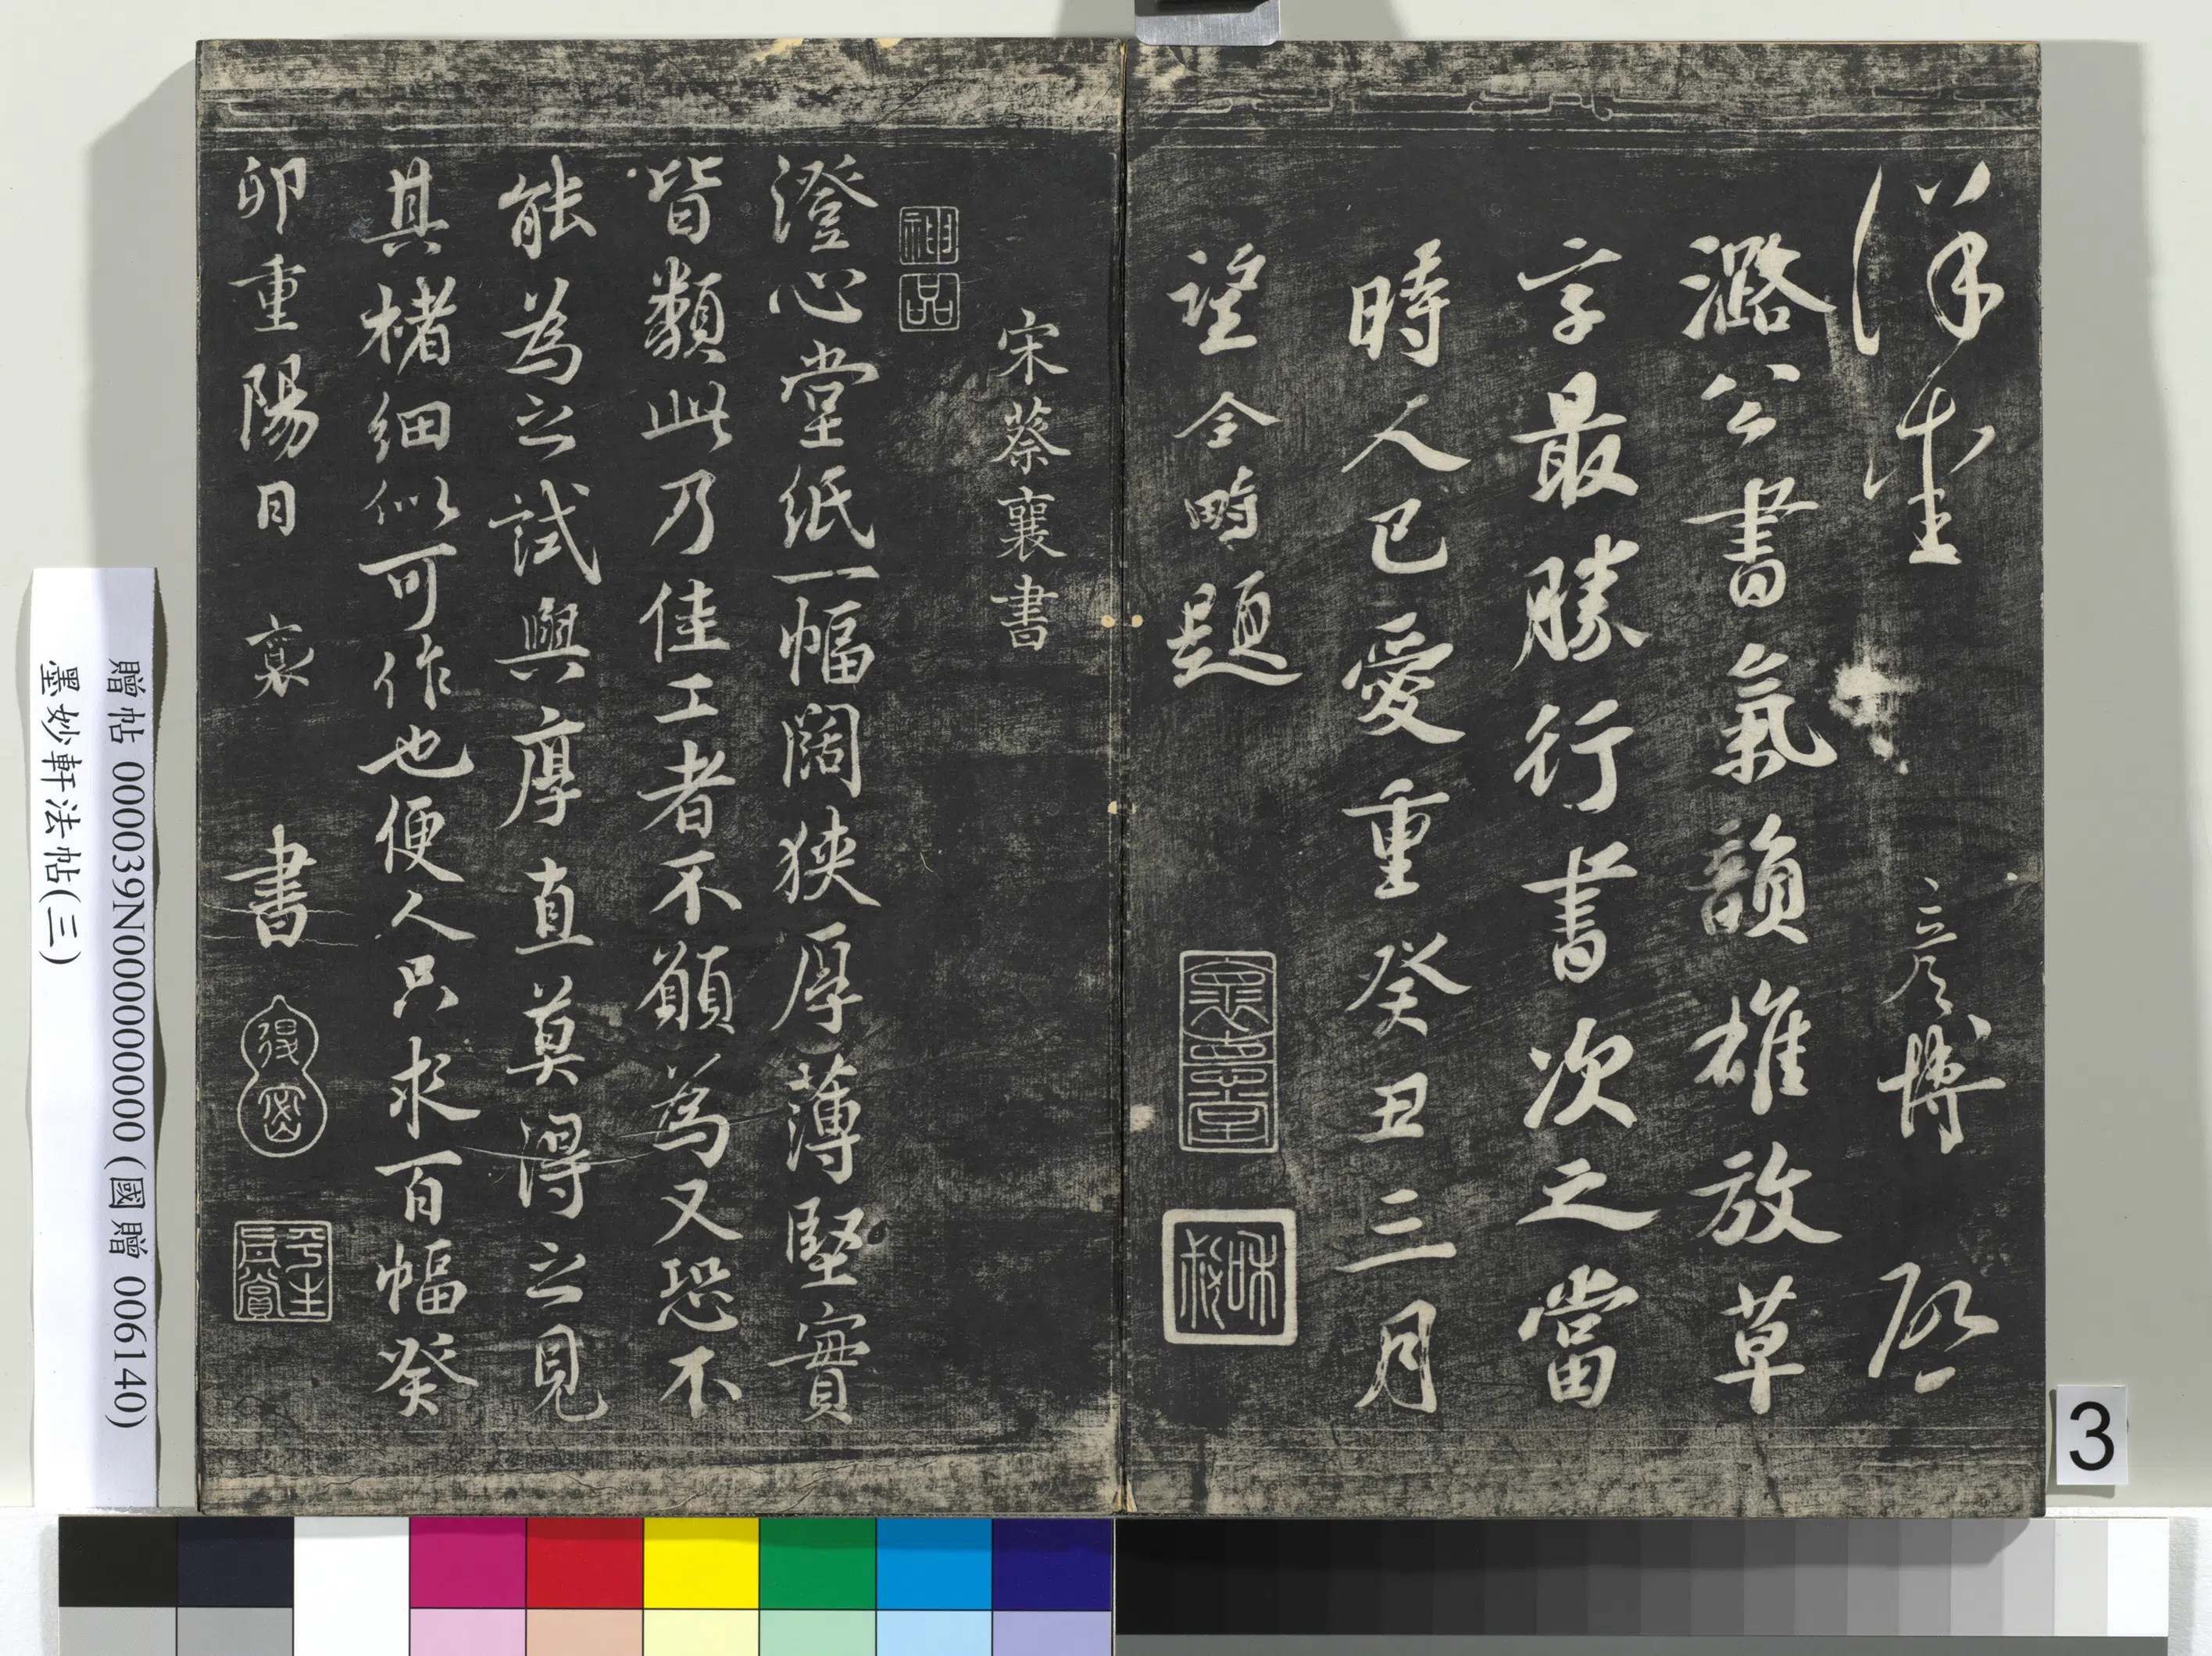 詳重 彥博 啓
潞公書氣韻雄放草
字最勝行書次之當
時人已愛重癸丑三月
望令畤題
宋蔡襄書
神品
澄心堂紙一幅闊狹厚薄堅實
皆類此乃佳工者不願為又恐不
能為之試與厚直莫得之見
其楮細似可作也便人只求百幅癸
卯重陽日 襄 書
平生真賞
贈帖 000039N000000000 (國贈 006140)
墨妙軒法帖(三)
3